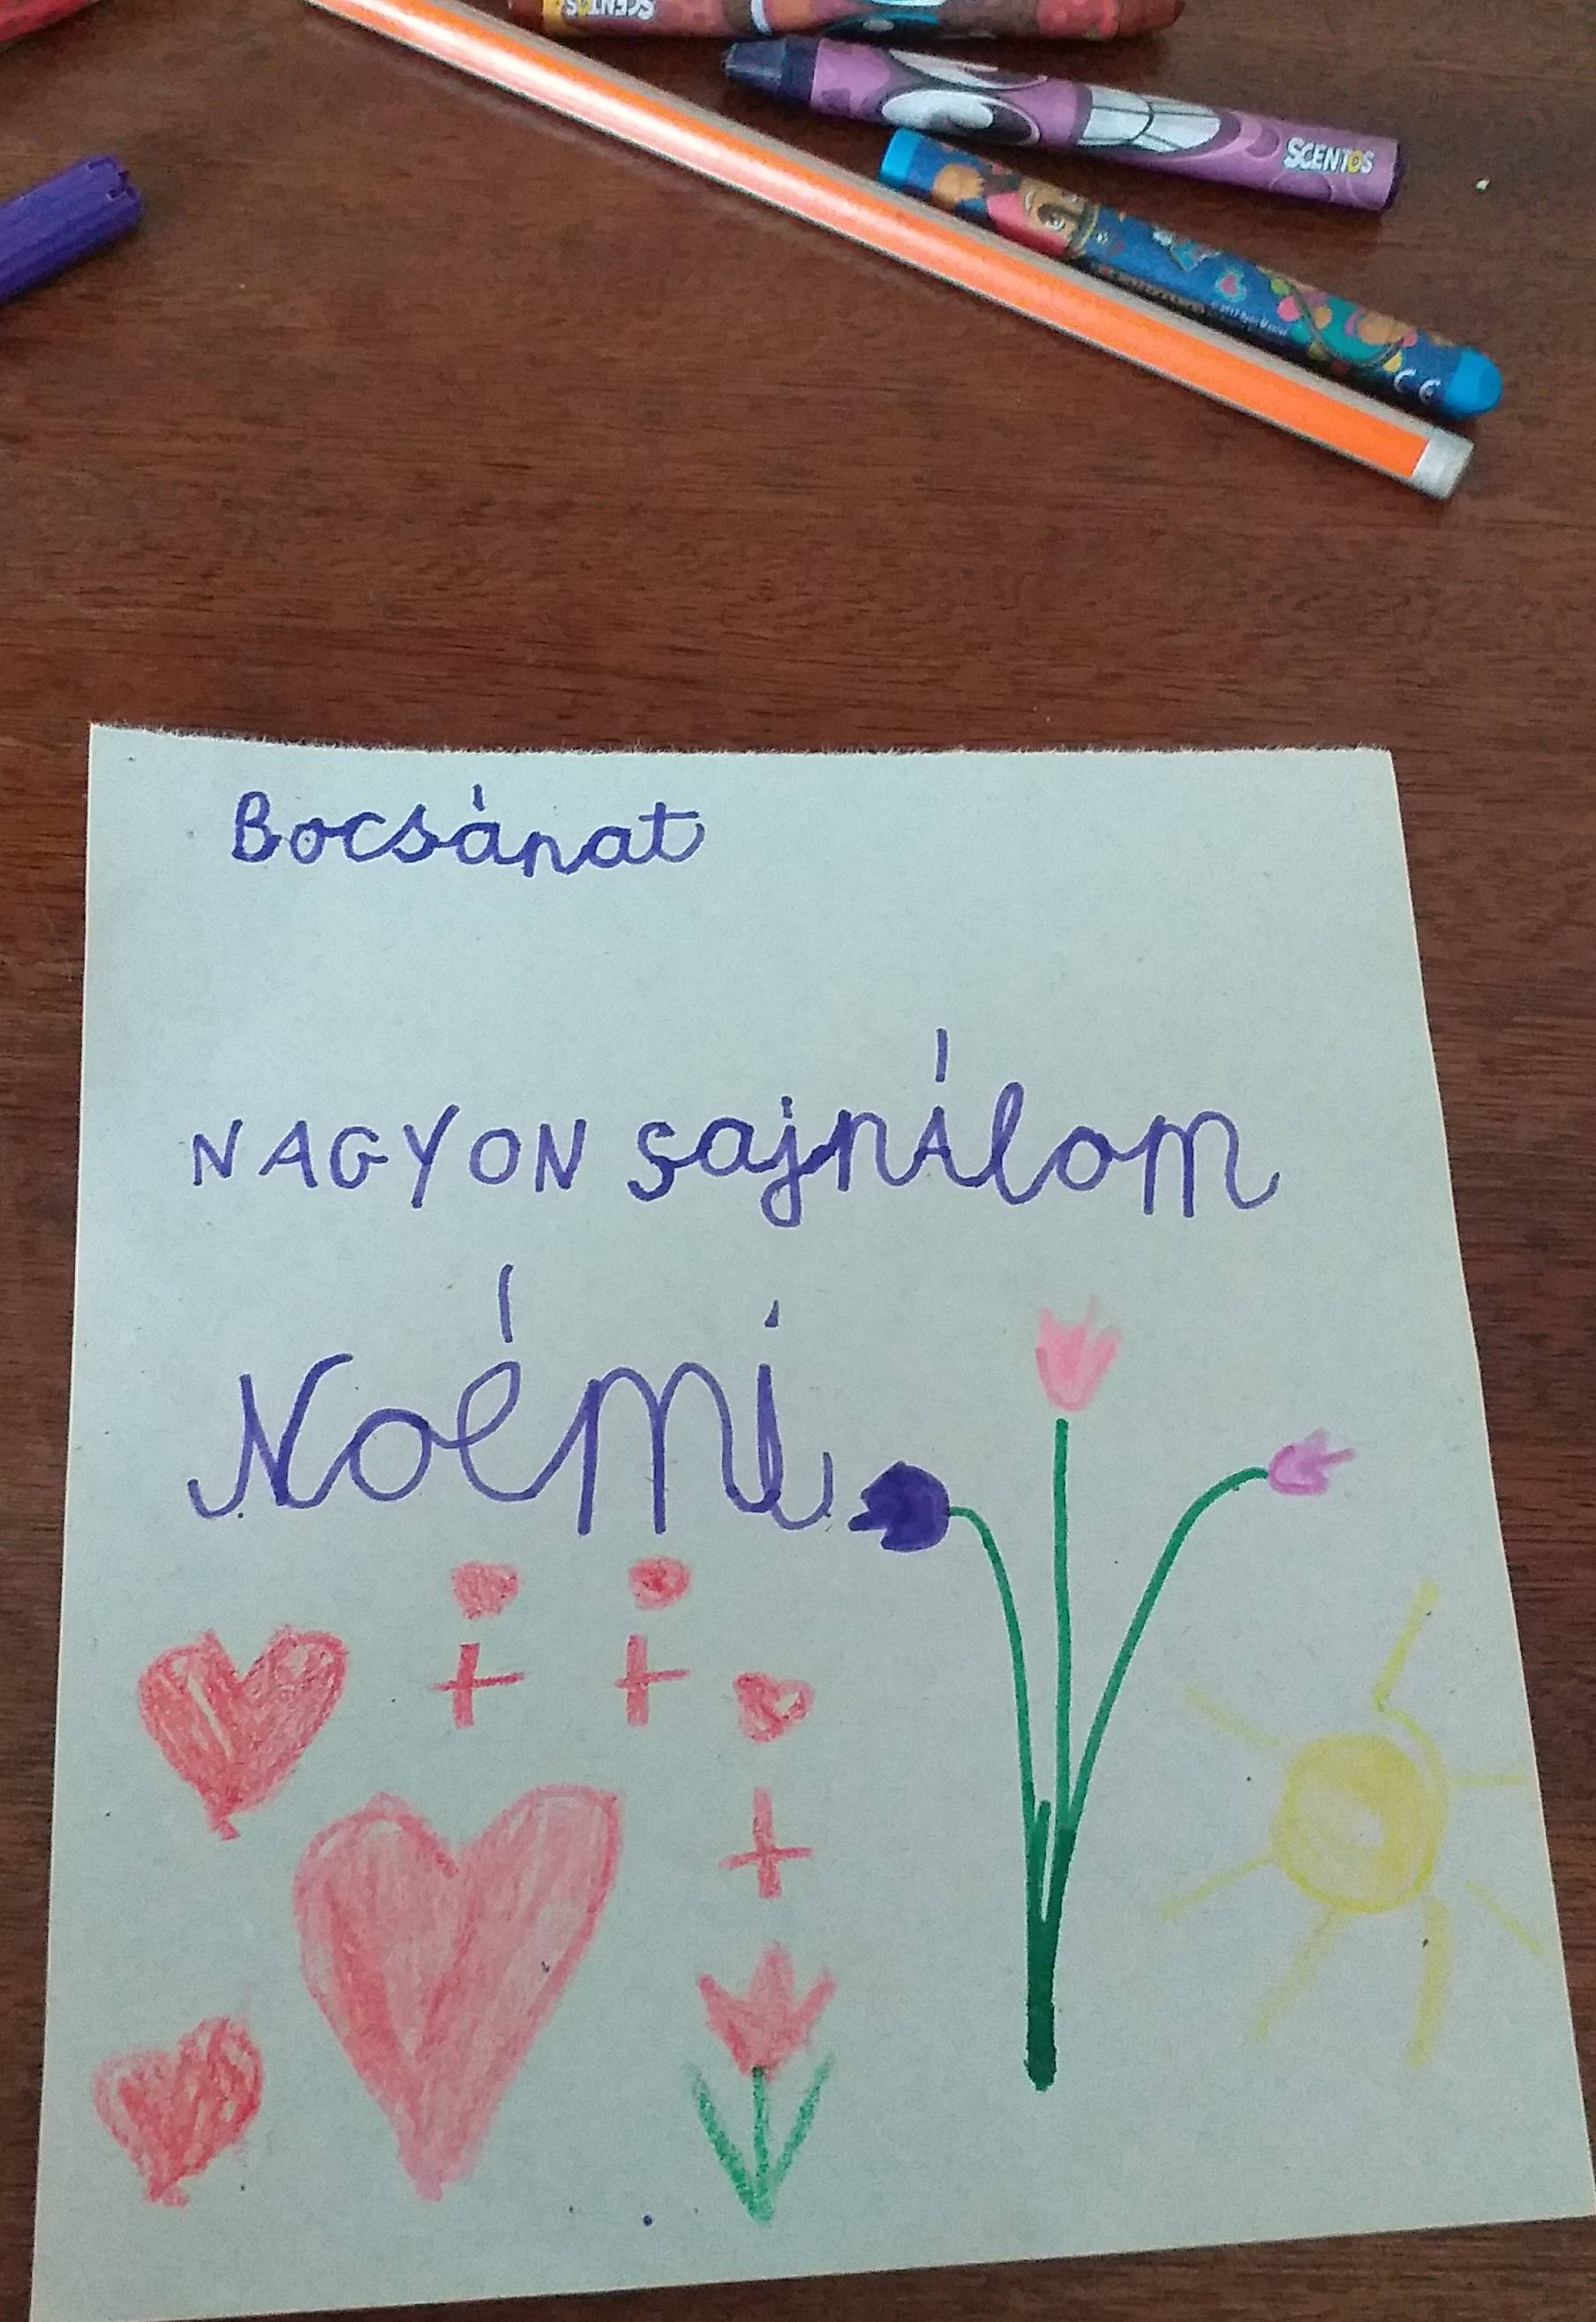 SCENTOS
SCENTOS
Bocsánat
NAGYON sajnÁlom
Noémi